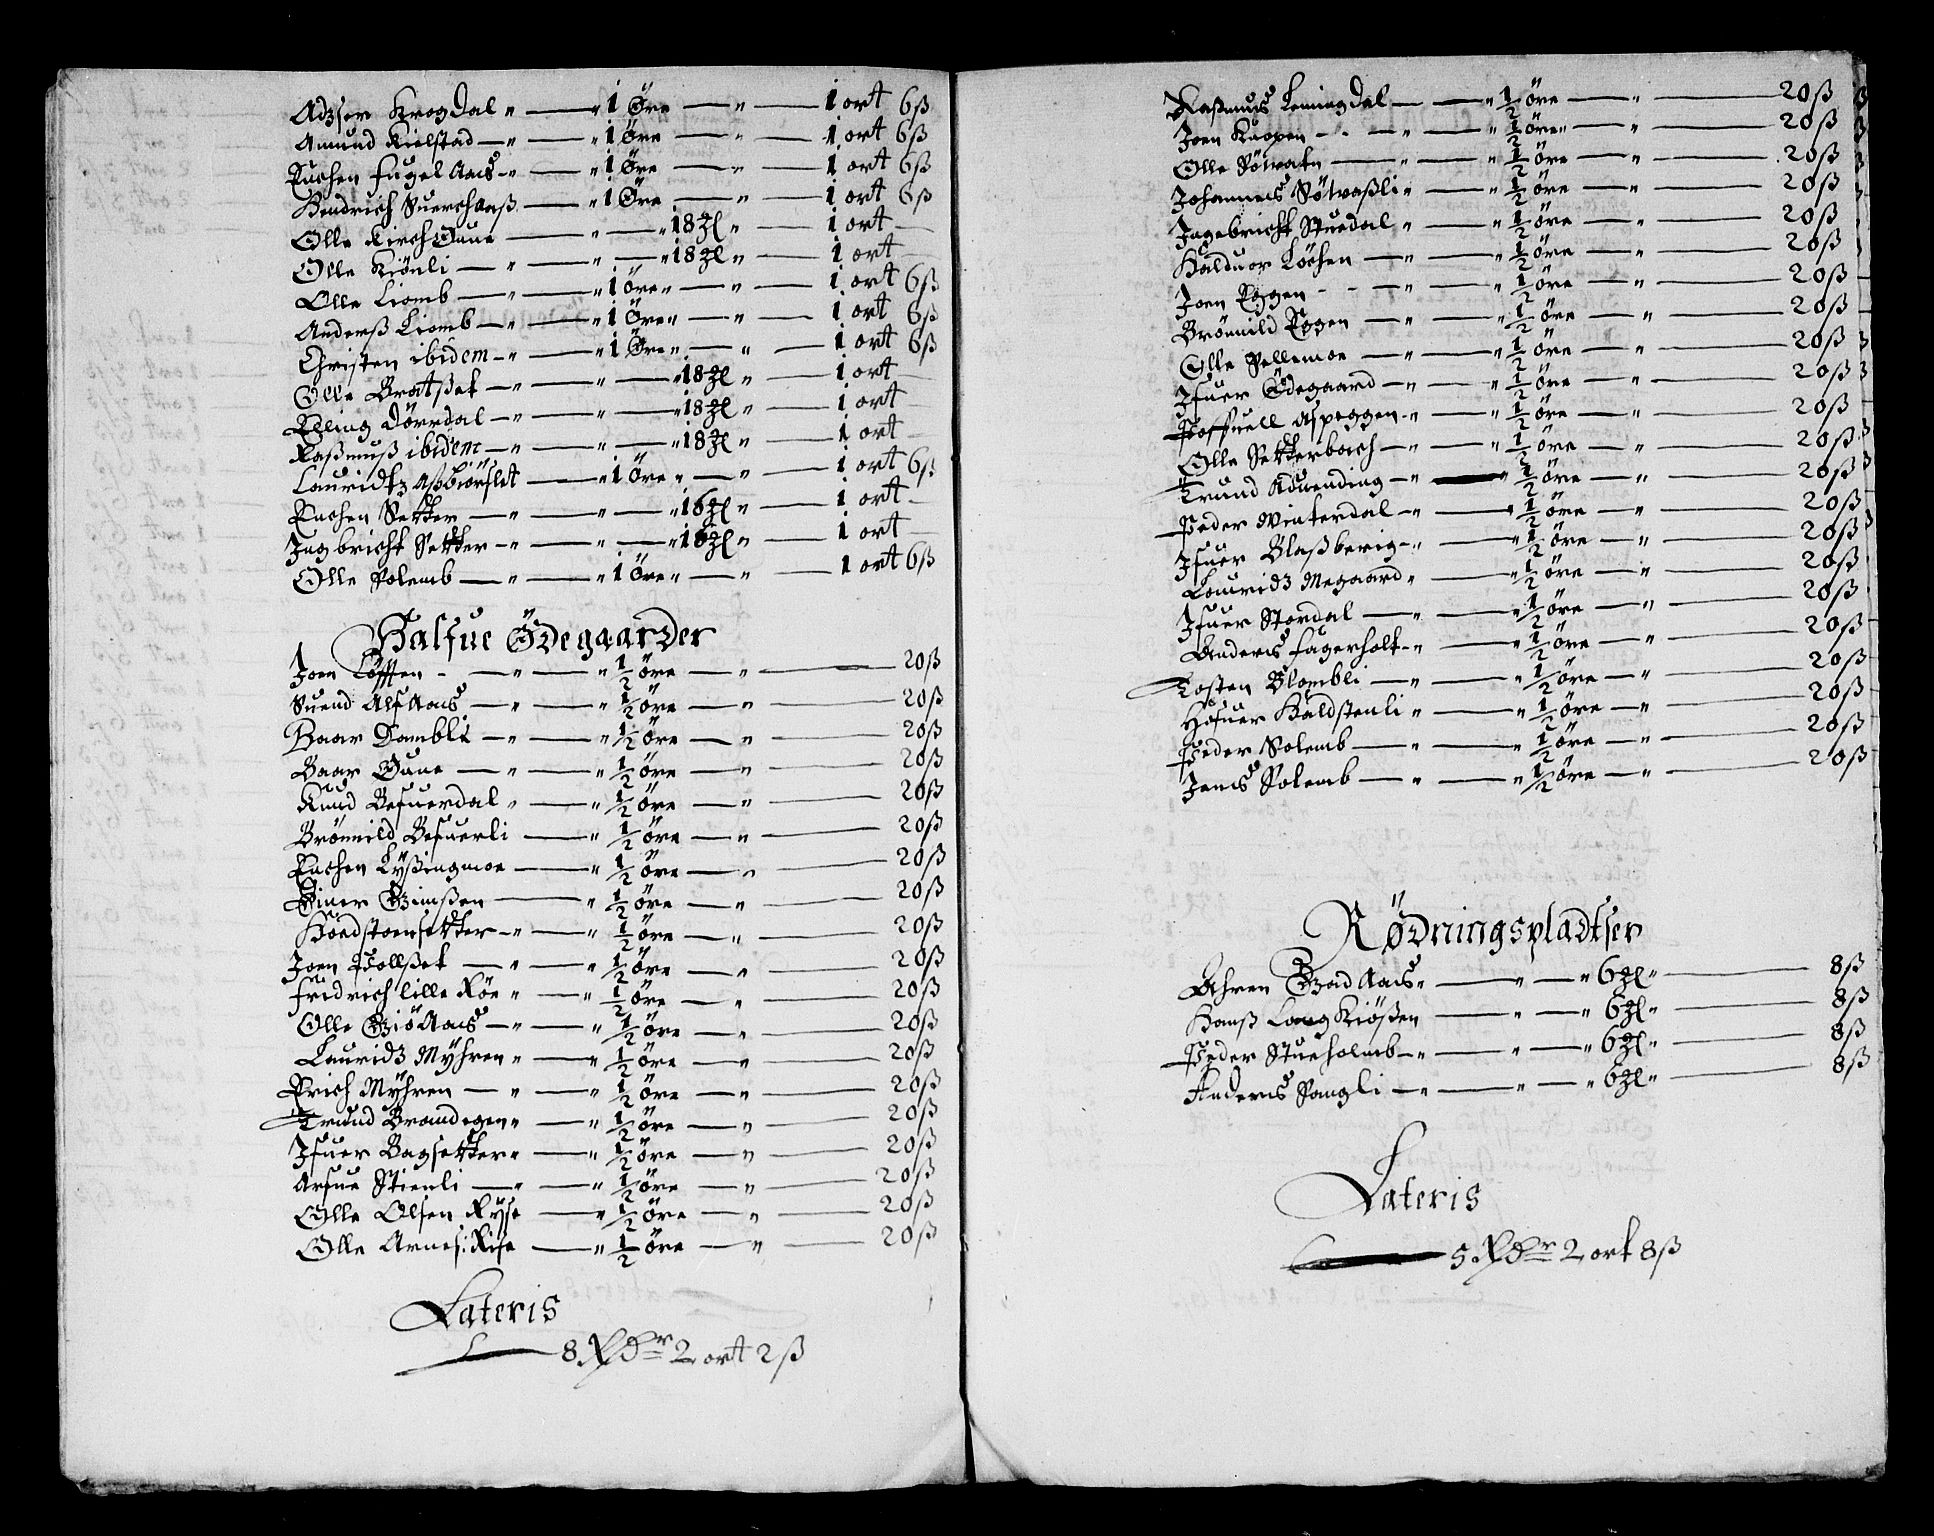 Adzser Krogdal " — " 1 Øre — " — 1 ort 6ß
Amund Kielstad — " — " 1 öre — " — 1 ort 6ß
Euchen Fugel Aas - " — " 1 öre — " — 1 ort 6ß
Hendrich Suerchaaß — " 1 Öre — " — 1 ort 6ß
Olle Kirch Øune — " — " 18 ℔ " — 1 ort —
Olle Kiönli — " — " — " 18 ℔ " — 1 ort —
Olle Liomb — " — " 1 öre " — " — 1 ort 6ß
Anderß Liomb — " — " 1 öre " — " — 1 ort 6ß
Christen ibidem - " — " 1 Öre " — " — 1 ort 6ß
Olle Bratßet — " — " — " 18 ℔ " — 1 ort —
Elling Dörrdal — " — " — " 18 ℔ " — 1 ort —
Raßmuß ibidem — " — " — " 18 ℔ " — 1 ort —
Lauridtz Aßbiörslet — " 1 öre " — " — 1 ort 6ß
Euchen Setter — " — " — " 16 ℔ " — 1 ort -
Ingbricht Setter - " — " — " 16 ℔ " — 1 ort —
Olle Solemb — " — " 1 öre " — " — 1 ort 6ß
Halfue Ödegaarder
Joen Löfften - " — " ½ öre — " — 20ß
Suend Alf Aas — " — " ½ öre — " — 20ß
Baar Dambli — " — " ½ öre — " — 20ß
Baar Øune — " — " ½ öre — " — 20ß
Knud Befuerdal " — " ½ öre — " — 20ß
Brönnild Befuerli — " ½ öre — " — 20ß
Euchen Lyßingmoe — " ½ öre — " — 20ß
Einer Grimßen — " ½ öre — " — 20ß
Hoedstoensetter — " — " ½ öre — " — 20ß
Joen Vollset — " — " ½ öre — " — 20ß
Fridrich lille Röe " — " ½ öre — " — 20ß
Olle Griö Aas — " — " ½ öre — " — 20ß
Lauridz Myhren " — " ½ öre — " — 20ß
Erich Myhren — " — " ½ öre — " — 20ß
Trund Brandegen " — " ½ öre — " — 20ß
Ifuer Bagsetter " — " ½ öre — " — 20ß
Arfue Stienli — " — " ½ öre — " — 20ß
Olle Olsen Ryse — " ½ öre — " — 20ß
Olle Arnes: Rise — " ½ öre — " — 20ß
Lateris
— 8 Rdr 2 ort 2ß
Raßmus Lemingdal — — " ½ öre — " — 20ß
Joen Kuopen - - — " — " ½ öre " — " — 20ß
Olle Sötvatn — " — " ½ öre — " — 20ß
Johannes Sötvaßli " — " ½ öre — " — 20ß
Ingebricht Stuedal " — " ½ öre — " — 20ß
Halduor Löchen — " — " ½ öre — " — 20ß
Joen Eggen - - — " — " ½ öre — " — 20ß
Brönnild Eggen — " — " ½ öre — " — 20ß
Olle Pellemoe — " — " ½ öre — " — 20ß
Ifuer Ödegaard — " — " ½ öre — " — 20ß
Poffuell Aspeggen - " — " ½ öre — " — 20ß
Olle Setterbach — " — " ½ öre — " — 20ß
Trund Kduending — " — " ½ öre — " — 20ß
Peder Winterdal — " — " ½ öre — " — 20ß
Ifuer Blaßberig - " — " ½ öre — " — 20ß
Lauridz Megaard " — " ½ öre — " — 20ß
Ifuer Stordal — " — " ½ öre — " — 20ß
Anders Fagerholt - " — " ½ öre — " — 20ß
Tosten Blombli — " — " ½ öre — " — 20ß
Hofuer Haldstenli " — " ½ öre — " — 20ß
Peder Solemb — " — " ½ öre — " — 20ß
Jens Solemb — " — " ½ öre — " — 20ß
Rödningspladtser
Ahren Grad Aas " — " — " 6 ℔ " — 8ß
Hanß Lang Kiößen — " — " 6 ℔ " — 8ß
Peder Stueholmb — " — " — " 6 ℔ " — 8ß
Anders Sangli — " — " — " 6 ℔ " — 8ß
Lateris
— 5 Rdr 2 ort 8ß